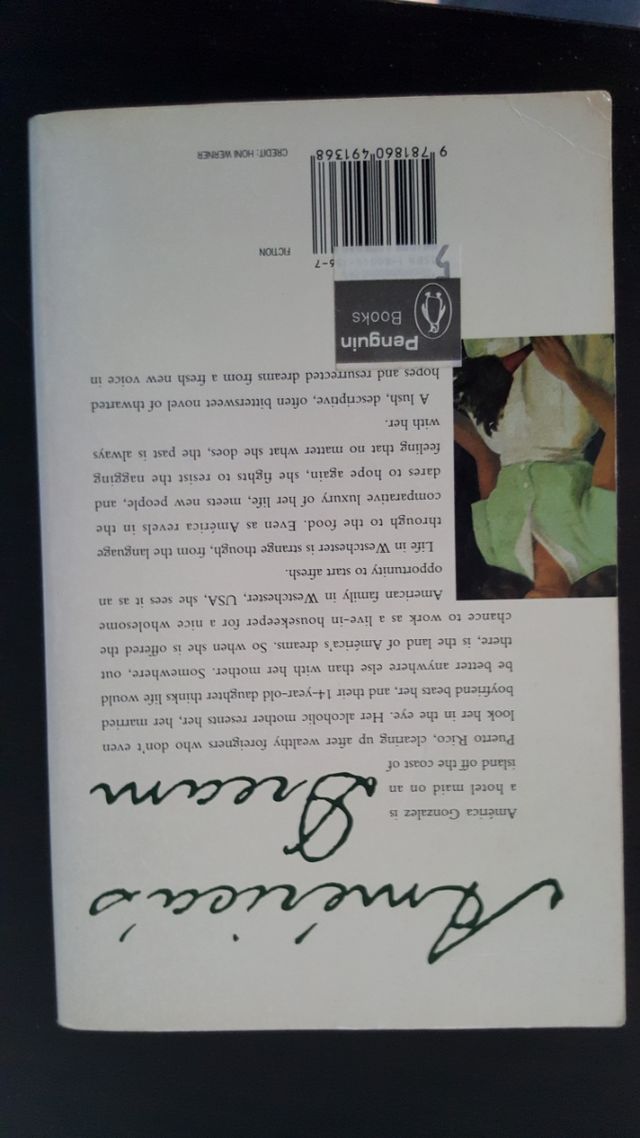 América's
Dream
América Gonzalez is
a hotel maid on an
island off the coast of
Puerto Rico, clearing up after wealthy foreigners who don't even
look her in the eye. Her alcoholic mother resents her, her married
boyfriend beats her, and their 14-year-old daughter thinks life would
be better anywhere else than with her mother. Somewhere, out
there, is the land of América's dreams. So when she is offered the
chance to work as a live-in housekeeper for a nice wholesome
American family in Westchester, USA, she sees it as an
opportunity to start afresh.
Life in Westchester is strange though, from the language
through to the food. Even as América revels in the
comparative luxury of her life, meets new people, and
dares to hope again, she fights to resist the nagging
feeling that no matter what she does, the past is always
with her.
A lush, descriptive, often bittersweet novel of thwarted
hopes and resurrected dreams from a fresh new voice in
Penguin
Books
FICTION
6-7
9 781860 491368
CREDIT: HONI WERNER